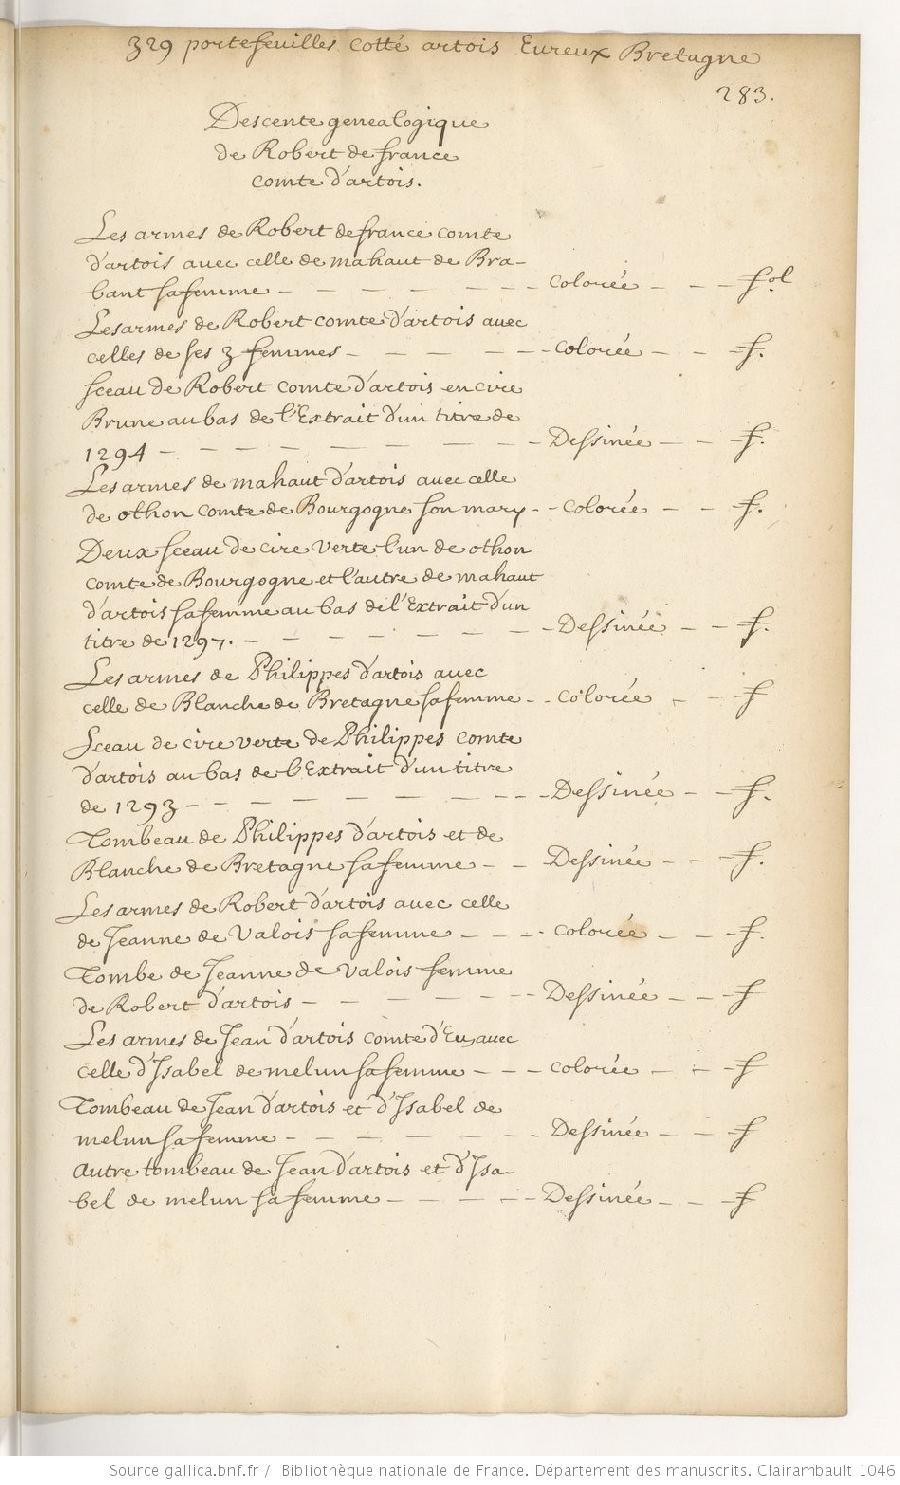 329 portefeuilles cotté artois Eureux Bretagne
283.
Descente genealogique
de Robert de france
comte d'artois.
Les armes de Robert de france comte
d'artois avec celle de mahaut de Bra-
bant sa femme - - - - - - - colorée - - - fol
Les armes de Robert comte d'artois avec
celles de ses 3 femmes - - - - - - colorée - - - f.
sceau de Robert comte d'artois en cire
Brune au bas de l'Extrait d'un titre de
1294 - - - - - - - - - Dessinée - - - f.
Les armes de mahaut d'artois avec celle
de othon comte de Bourgogne son mary - - colorée - - - f.
Deux sceau de cire verte l'un de othon
comte de Bourgogne et l'autre de mahaut
d'artois sa femme au bas de l'Extrait d'un
titre de 1297. - - - - - - - - Dessinée - - - f.
Les armes de Philippes d'artois avec
celle de Blanche de Bretagne sa femme - - colorée - - - f
Sceau de cire verte de Philippes comte
d'artois au bas de l'Extrait d'un titre
de 1293 - - - - - - - - - Dessinée - - - f.
Tombeau de Philippes d'artois et de
Blanche de Bretagne sa femme - - Dessinée - - - f.
Les armes de Robert d'artois avec celle
de Jeanne de Valois sa femme - - - - colorée - - - f.
Tombe de Jeanne de Valois femme
de Robert d'artois - - - - - - - Dessinée - - - f
Les armes de Jean d'artois comte d'Eu avec
celle d'Isabel de melun sa femme - - - colorée - - - f
Tombeau de Jean d'artois et d'Isabel de
melun sa femme - - - - - - - Dessinée - - - f
autre tombeau de Jean d'artois et d'Isa-
bel de melun sa femme - - - - - Dessinée - - - f
Source gallica.bnf.fr / Bibliothèque nationale de France. Département des manuscrits. Clairambault 1046